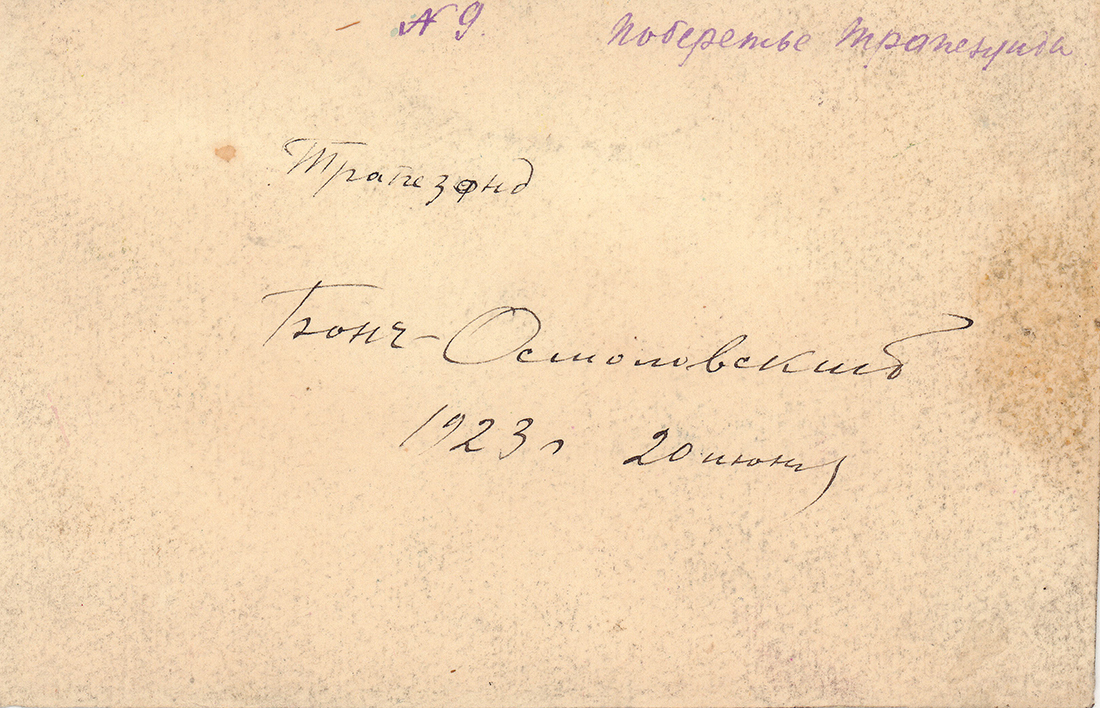 N 9. Побережье Трапезунда
Трапезонд
Бонч-Осмоловский
1923 г 20 июня